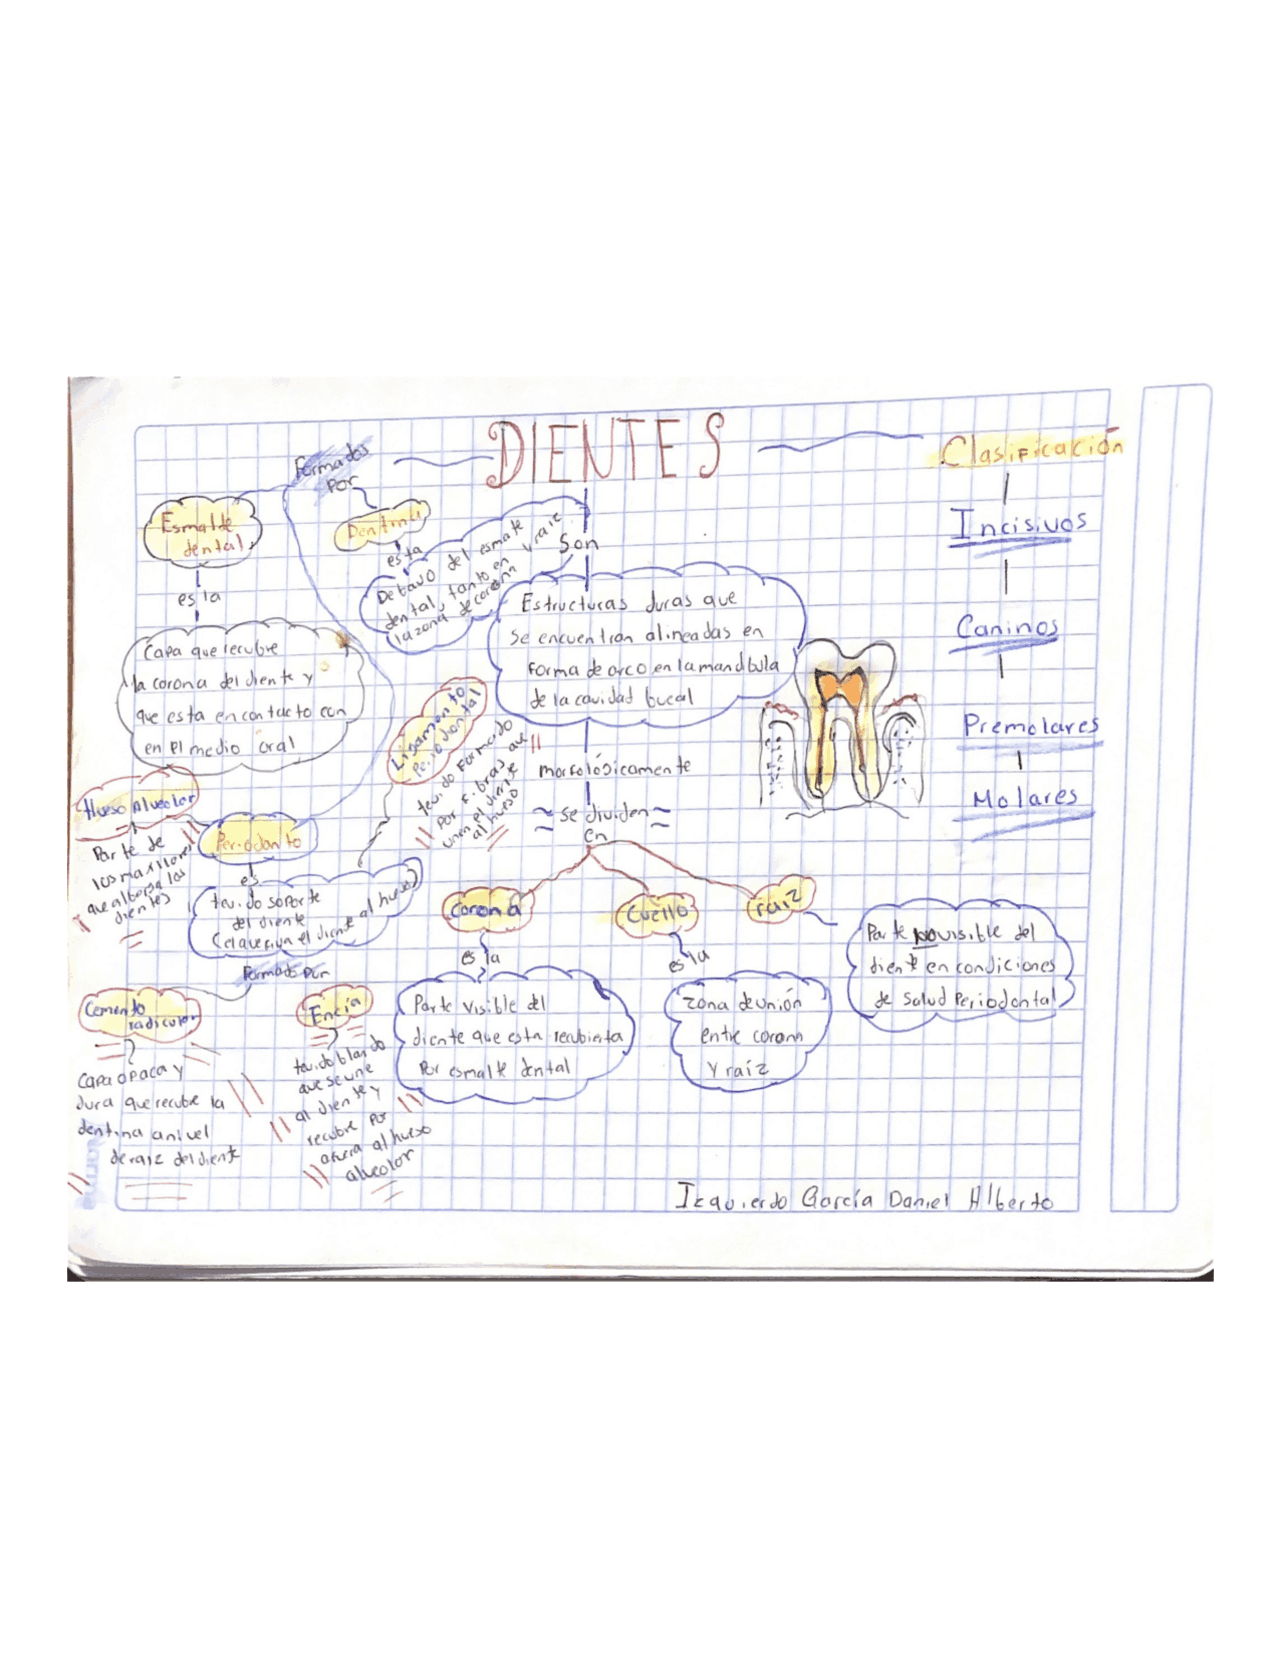 DIENTES
Clasificación
Incisivos
Caninos
Premolares
Molares
Formados
por
Esmalte
dental
es la
Capa que recubre
la corona del diente y
que esta en contacto con
en el medio oral
Dentina
esta
Debajo del esmalte
dental, tanto en
la zona de corona
y raiz
Son
Estructuras duras que
se encuentran alineadas en
forma de arco en la mandibula
de la cavidad bucal
morfológicamente
se dividen
en
Corona
es la
Parte visible del
diente que esta recubierta
Por esmalte dental
Cuello
es la
Zona de unión
entre corona
y raíz
raiz
Parte no visible del
diente en condiciones
de salud Periodontal
Periodonto
es
tejido soporte
del diente
(el que fija el diente al hueso)
Formado por
Hueso Alveolar
Parte de
los maxilares
que alberga los
dientes
Ligamento
Periodontal
tejido formado
por fibras que
unen el diente
al hueso
Cemento
radicular
Capa opaca y
dura que recubre la
dentina a nivel
de raiz del diente
Encía
tejido blando
que se une
al diente y
recubre por
afuera al hueso
alveolar
Izquierdo García Daniel Alberto